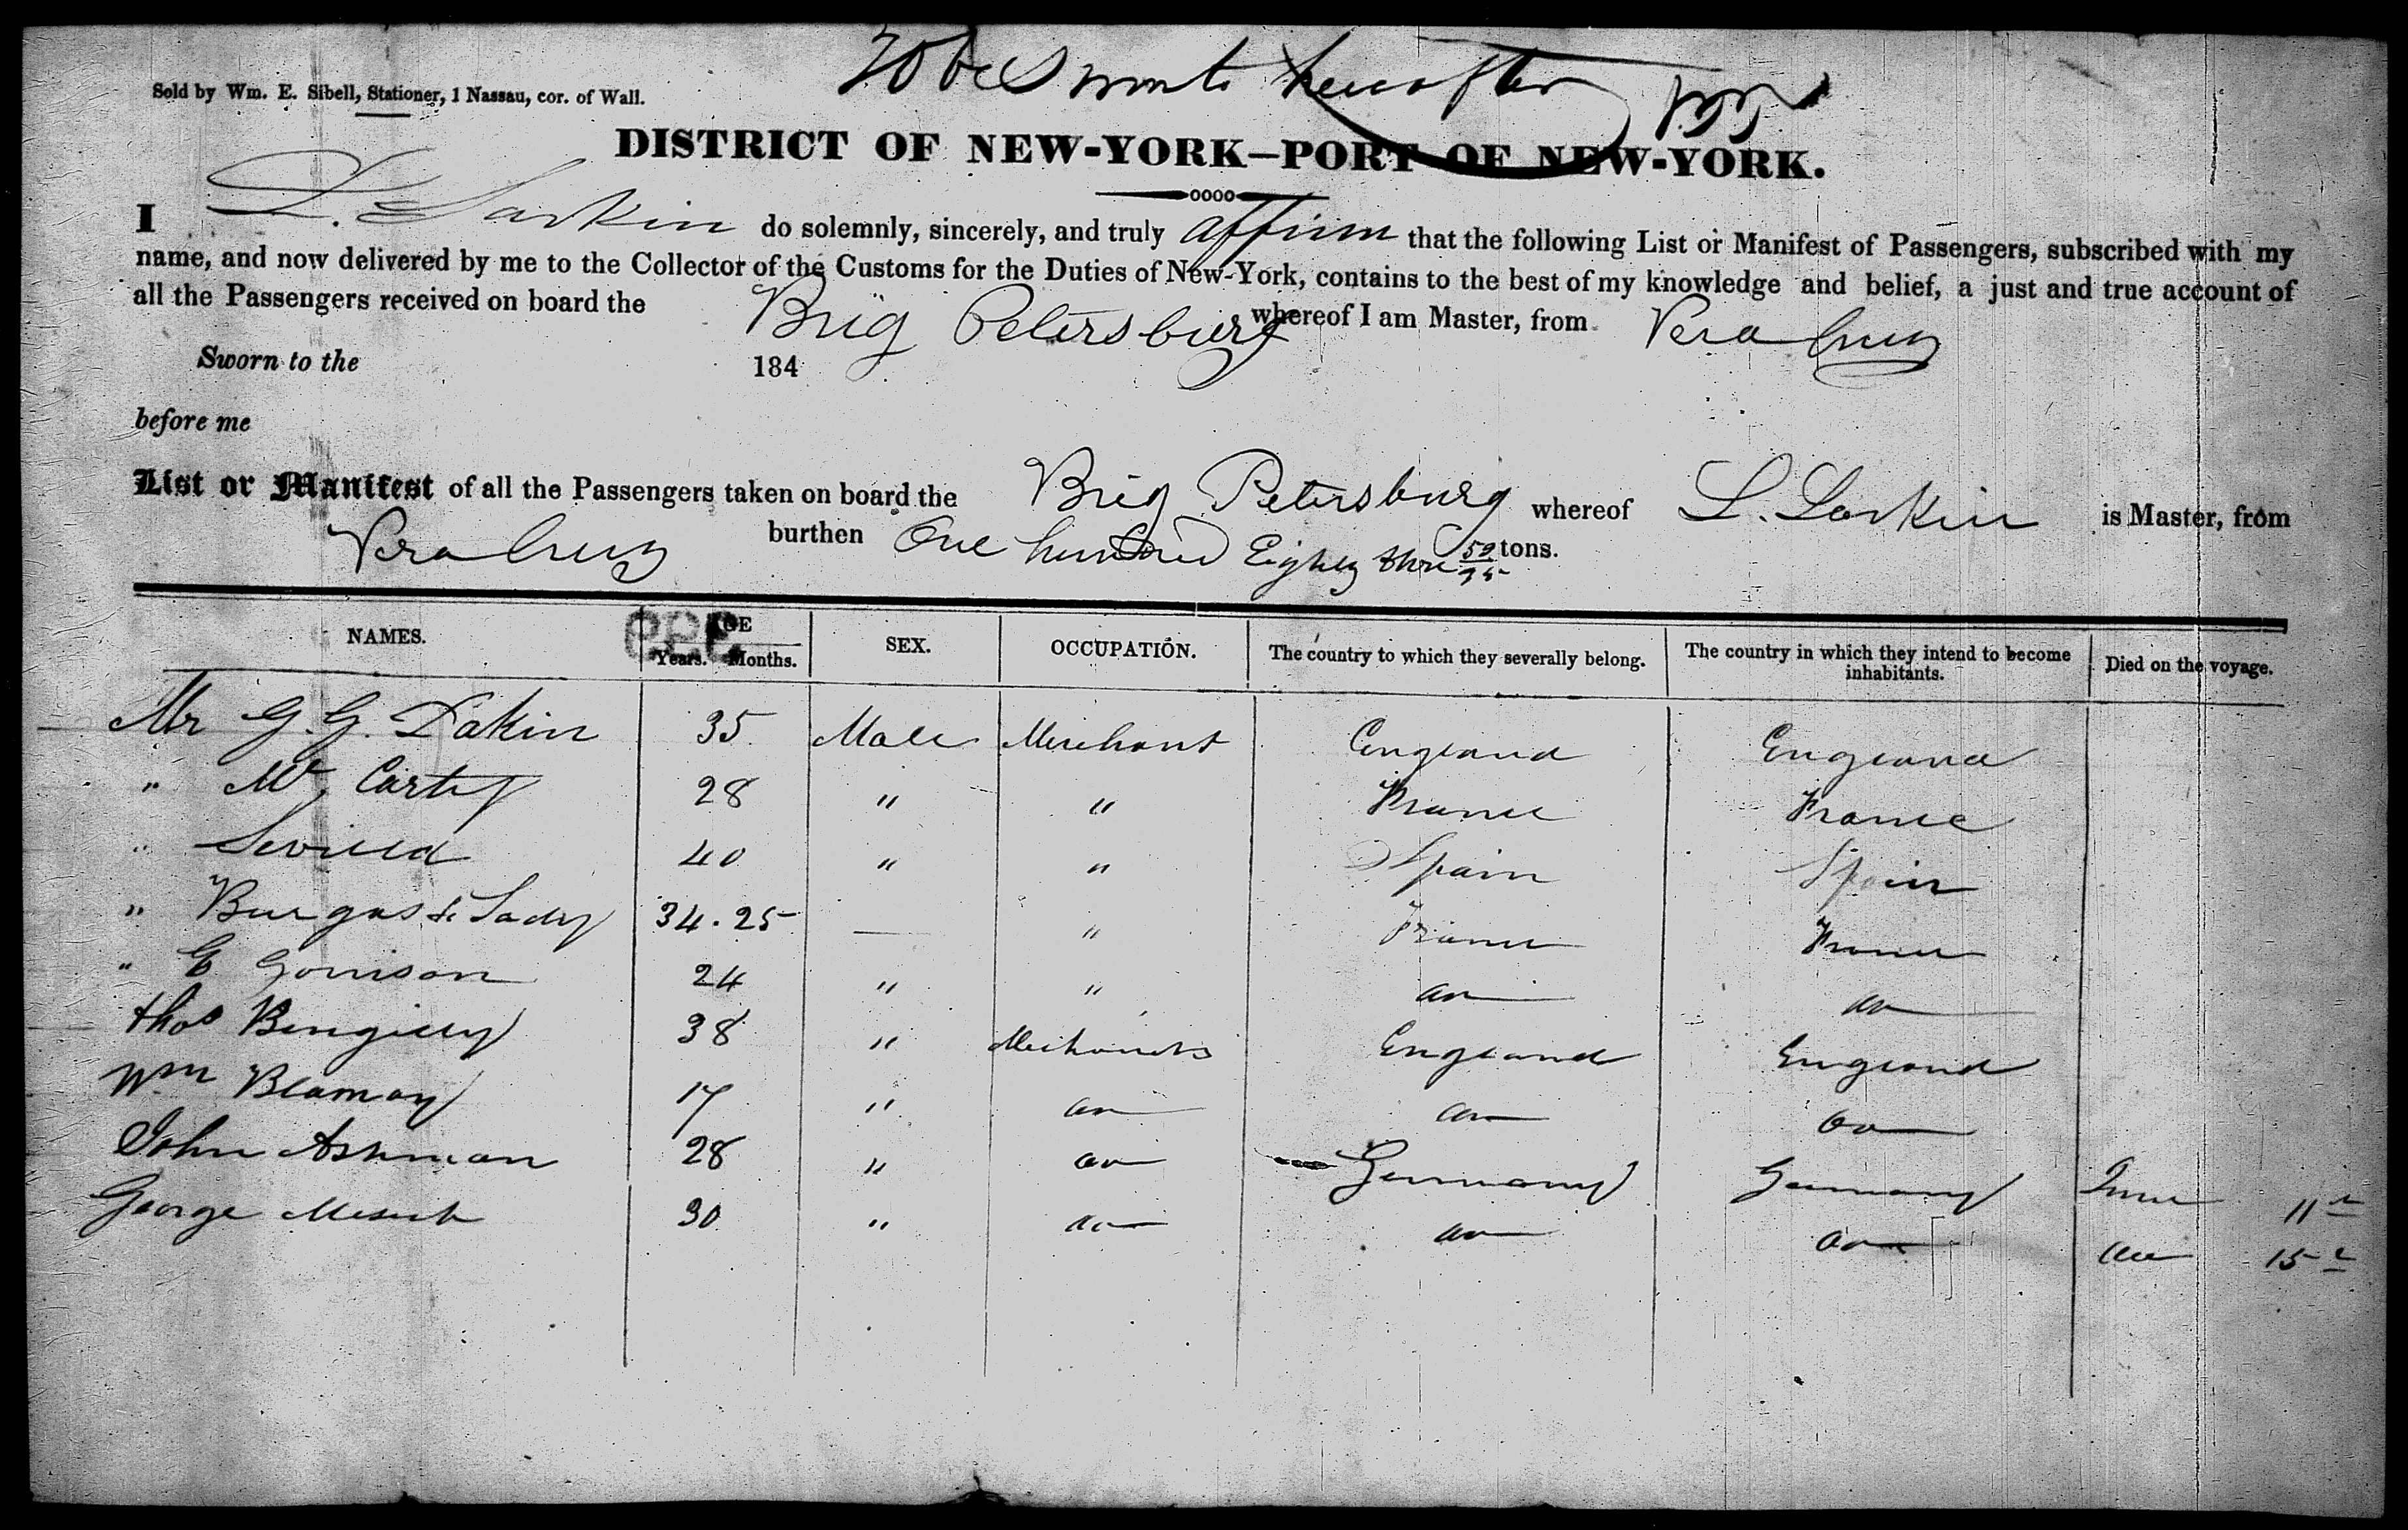 Sold by Wm. E. Sibell, Stationer, 1 Nassau, cor. of Wall.
DISTRICT OF NEW-YORK—PORT OF NEW-YORK.
I L. Larkin do solemnly, sincerely, and truly affirm that the following List or Manifest of Passengers, subscribed with my
name, and now delivered by me to the Collector of the Customs for the Duties of New-York, contains to the best of my knowledge and belief, a just and true account of
all the Passengers received on board the Brig Petersburg whereof I am Master, from Vera Cruz
Sworn to the 184
before me
List or Manifest of all the Passengers taken on board the Brig Petersburg whereof L. Larkin is Master, from
Vera Cruz burthen One hundred Eighty three 59/95 tons.
NAMES. AGE Years. Months. SEX. OCCUPATION. The country to which they severally belong. The country in which they intend to become inhabitants. Died on the voyage.
Mr G. G. Dakin 35 Male Merchant England England
" 28 " " France France
" 40 " " Spain Spain
" Burgas & Lady 34 . 25 — " France France
" G 24 " " do do
Thos 38 " Mechanics England England
Wm 17 " do do do
John Ashman 28 " do Germany Germany June 11th
George 30 " do do do do 15th